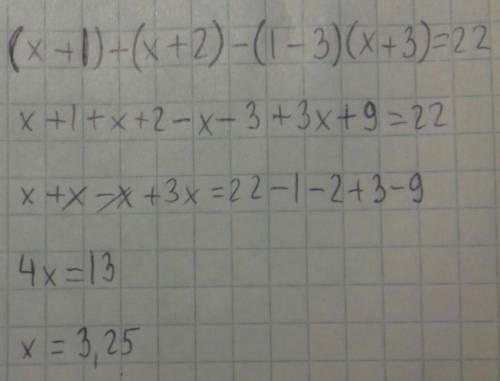 (x+1)+(x+2)-(1-3)(x+3)=22
x+1+x+2-x-3+3x+9=22
x+x-x+3x=22-1-2+3-9
4x=13
x=3,25